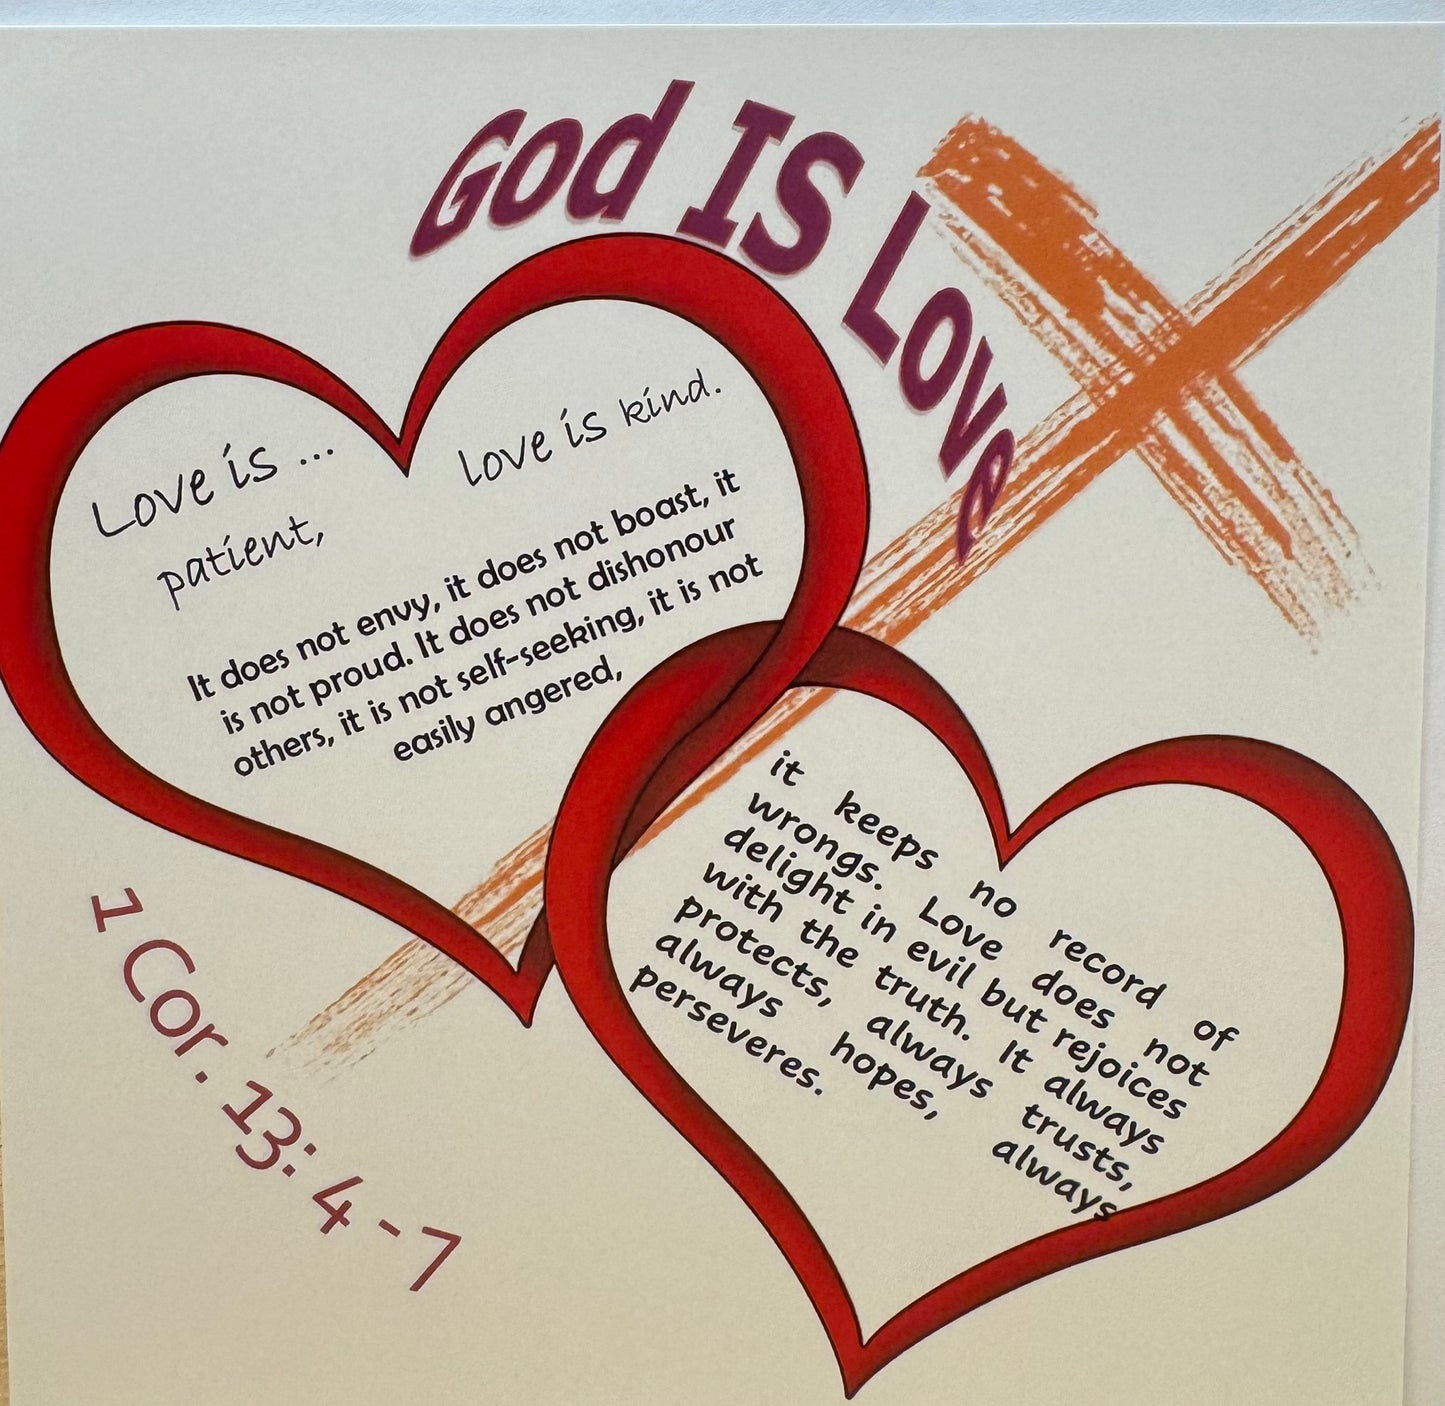 God IS Love
Love is ...
patient,
love is kind.
It does not envy, it does not boast, it
is not proud. It does not dishonour
others, it is not self-seeking, it is not
easily angered,
it keeps no record of
wrongs. Love does not
delight in evil but rejoices
with the truth. It always
protects, always trusts,
always hopes, always
perseveres.
1 Cor. 13: 4 - 7